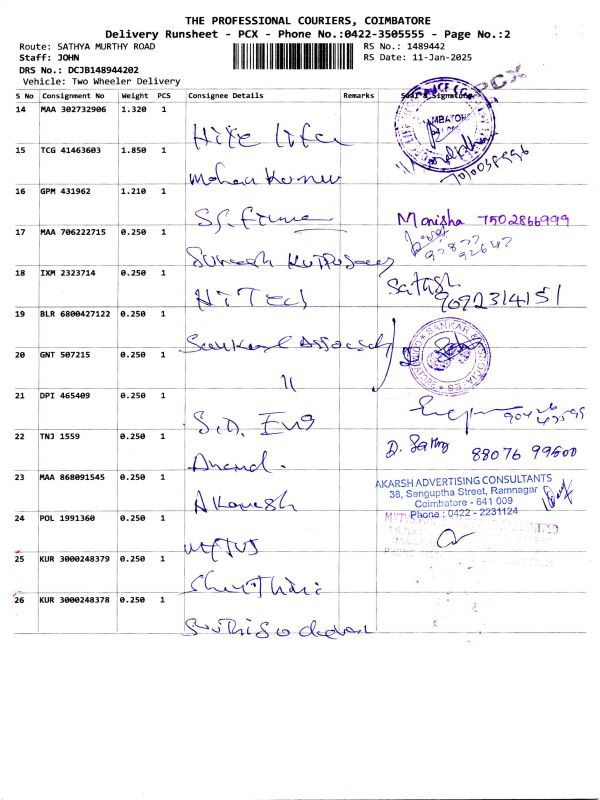 THE PROFESSIONAL COURIERS, COIMBATORE
Delivery Runsheet - PCX - Phone No.:0422-3505555 - Page No.:2
Route: SATHYA MURTHY ROAD
RS No.: 1489442
Staff: JOHN
RS Date: 11-Jan-2025
DRS No.: DCJB148944202
Vehicle: Two Wheeler Delivery
PCX
S No Consignment No Weight PCS Consignee Details Remarks Seal & Signature
14 MAA 302732906 1.320 1
Hife life
7010038996
15 TCG 41463603 1.850 1
Mohan Kumar
16 GPM 431962 1.210 1
S.S. Firma
Monisha 7502866999
17 MAA 706222715 0.250 1
Suresh
97877
92647
18 IXM 2323714 0.250 1
HiTech
Satish
9092314151
19 BLR 6800427122 0.250 1
Sankar Associates
SANKAR ASSOCIATES
20 GNT 507215 0.250 1
11
21 DPI 465409 0.250 1
S.D. Eng
22 TNJ 1559 0.250 1
Anand.
D. Sathy 88076 99600
23 MAA 868091545 0.250 1
Akarsh
AKARSH ADVERTISING CONSULTANTS
38, Senguptha Street, Ramnagar
Coimbatore - 641 009
Phone : 0422 - 2231124
24 POL 1991360 0.250 1
25 KUR 3000248379 0.250 1
26 KUR 3000248378 0.250 1